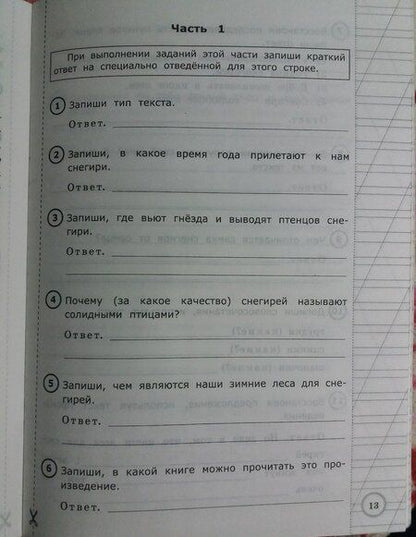 Часть 1
При выполнении заданий этой части запиши краткий
ответ на специально отведённой для этого строке.
1 Запиши тип текста.
Ответ.
2 Запиши, в какое время года прилетают к нам
снегири.
Ответ.
3 Запиши, где вьют гнёзда и выводят птенцов сне-
гири.
Ответ.
4 Почему (за какое качество) снегирей называют
солидными птицами?
Ответ.
5 Запиши, чем являются наши зимние леса для сне-
гирей.
Ответ.
6 Запиши, в какой книге можно прочитать это про-
изведение.
Ответ.
13